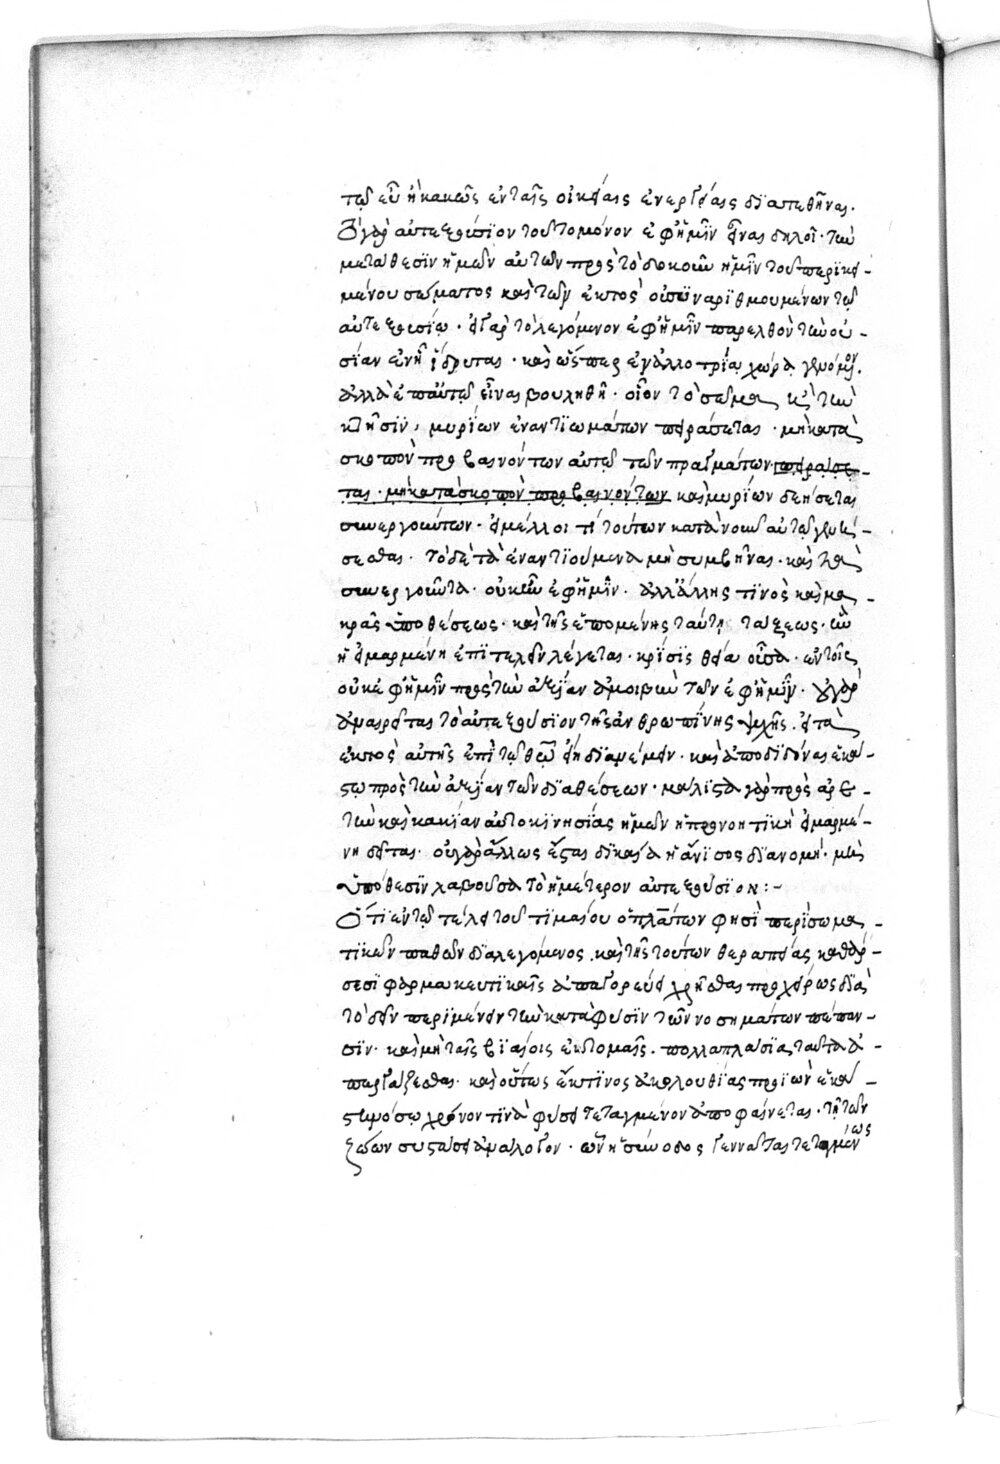 τῷ εὖ ἢ κακῶς ἐν ταῖς οἰκείαις ἐνεργείαις διατεθῆναι.
ὃ γὰρ αὐτεξούσιον τοῦτο μόνον ἐφ' ἡμῖν εἶναι δηλοῖ· τὴν
μετάθεσιν ἡμῶν αὐτῶν πρὸς τὸ δοκοῦν ἡμῖν τοῦ περικει-
μένου σώματος καὶ τῶν ἐκτὸς οὐ συναριθμουμένων τῷ
αὐτεξουσίῳ. εἰ γὰρ τὸ λεγόμενον ἐφ' ἡμῖν παρελθὸν τὴν οὐ-
σίαν ἐν ᾗ ἵδρυται· καὶ ὥσπερ ἐν ἀλλοτρίᾳ χώρᾳ γενόμενον.
ἀλλὰ ἐπ' αὐτῷ εἶναι βουληθῇ· οἷον τὸ σῶμα κ(αὶ) τὴν
κτῆσιν, μυρίων ἐναντιωμάτων πειράσεται· μὴ κατὰ
σκοπὸν προβαινόντων αὐτῷ τῶν πραγμάτων πειράσε-
ται· μὴ κατὰ σκοπὸν προβαινόντων καὶ μυρίων δεήσεται
συνεργούντων· εἰ μέλλοι τι τούτων κατὰ νοῦν αὐτῷ γενή-
σεσθαι. τὸ δὲ τὰ ἐναντιούμενα μὴ συμβῆναι· καὶ τὰ
συνεργοῦντα· οὐκ ἦν ἐφ' ἡμῖν· ἀλλ' ἄλλης τινὸς καὶ μα-
κρᾶς ὑποθέσεως· καὶ τῆς ἑπομένης ταύτῃ τάξεως· ὧν
ἡ εἱμαρμένη ἐπιτελεῖν λέγεται· κρίσις θεία οὖσα· ἐν τοῖς
οὐκ ἐφ' ἡμῖν πρὸς τὴν ἀξίαν ἀμοιβὴν τῶν ἐφ' ἡμῖν. εἰ γὰρ
ἀναιρεῖται τὸ αὐτεξούσιον τῆς ἀνθρωπίνης ψυχῆς. εἰ τὰ
ἐκτὸς αὐτῆς ἐπὶ τῷ θεῷ εἴη διανέμειν· καὶ ἀποδιδόναι ἑκά-
στῳ πρὸς τὴν ἀξίαν τῶν διαθέσεων· μάλιστα γὰρ πρὸς ἀρε-
τὴν καὶ κακίαν αὐτοκινησίας ἡμῶν ἡ προνοητικὴ εἱμαρμέ-
νη δεῖται. οὐ γὰρ ἄλλως ἔσται δικαία ἡ ἄνισος διανομή· μὴ
ὑπόθεσιν λαβοῦσα τὸ ἡμέτερον αὐτεξούσιον:-
Ὅτι ἐν τῷ τέλει τοῦ τιμαίου ὁ πλάτων φησὶ περὶ σωμα-
τικῶν παθῶν διαλεγόμενος. καὶ τῆς τούτων θεραπείας καθάρ-
σεσι φαρμακευτικαῖς ἀπαγορεύει χρῆσθαι προχείρως διὰ
τὸ δεῖν περιμένειν τὴν κατὰ φύσιν τῶν νοσημάτων πέπαν-
σιν· καὶ μὴ ταῖς βιαίοις ἐκτομαῖς. πολλαπλάσια ταῦτα ἀ-
περγάζεσθαι. καὶ οὕτως ἔκ τινος ἀκολουθίας προϊὼν ἑκά-
στῳ νόσῳ χρόνον τινὰ φύσει τεταγμένον ἀποφαίνεται. τῇ τῶν
ζώων συστάσει ἀνάλογον· ὧν ἡ σύνοδος γεννᾶται τεταγμένως